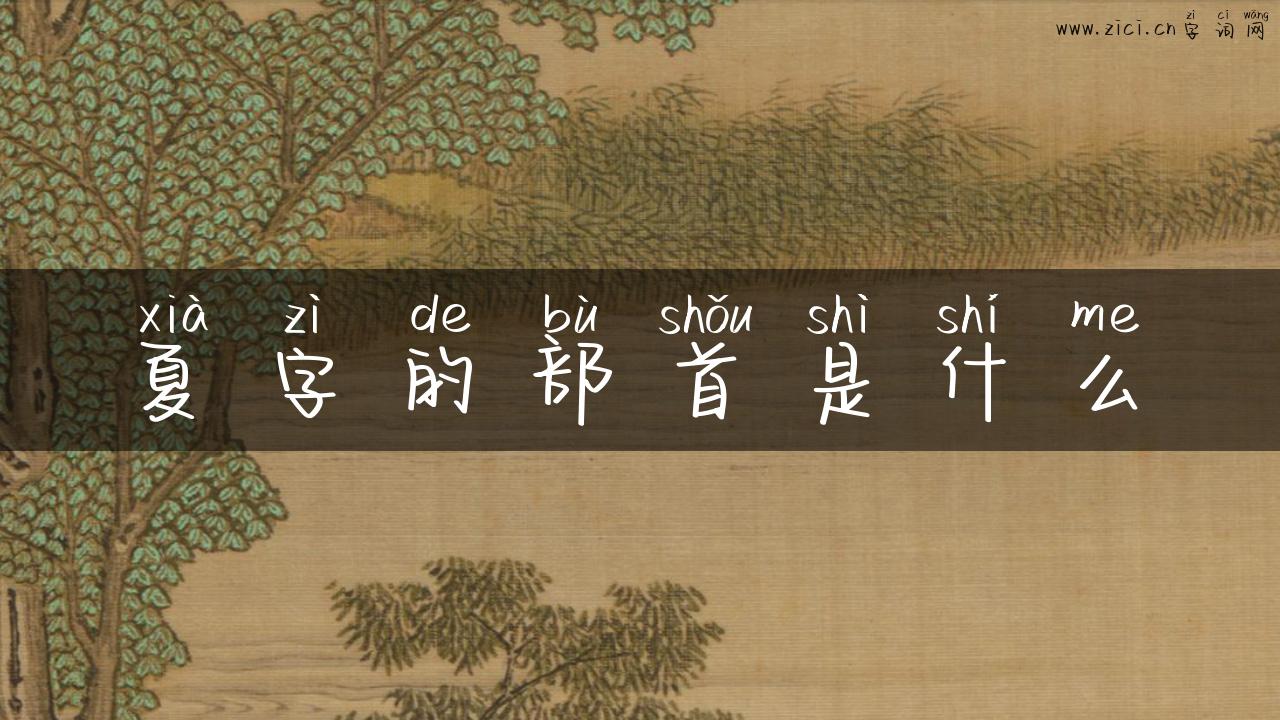 zì cí wǎng
www.zici.cn字词网
xià zì de bù shǒu shì shí me
夏字的部首是什么